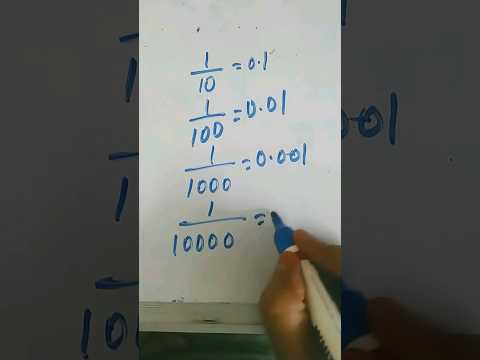 1/10 = 0.1
1/100 = 0.01
1/1000 = 0.001
1/10000 =